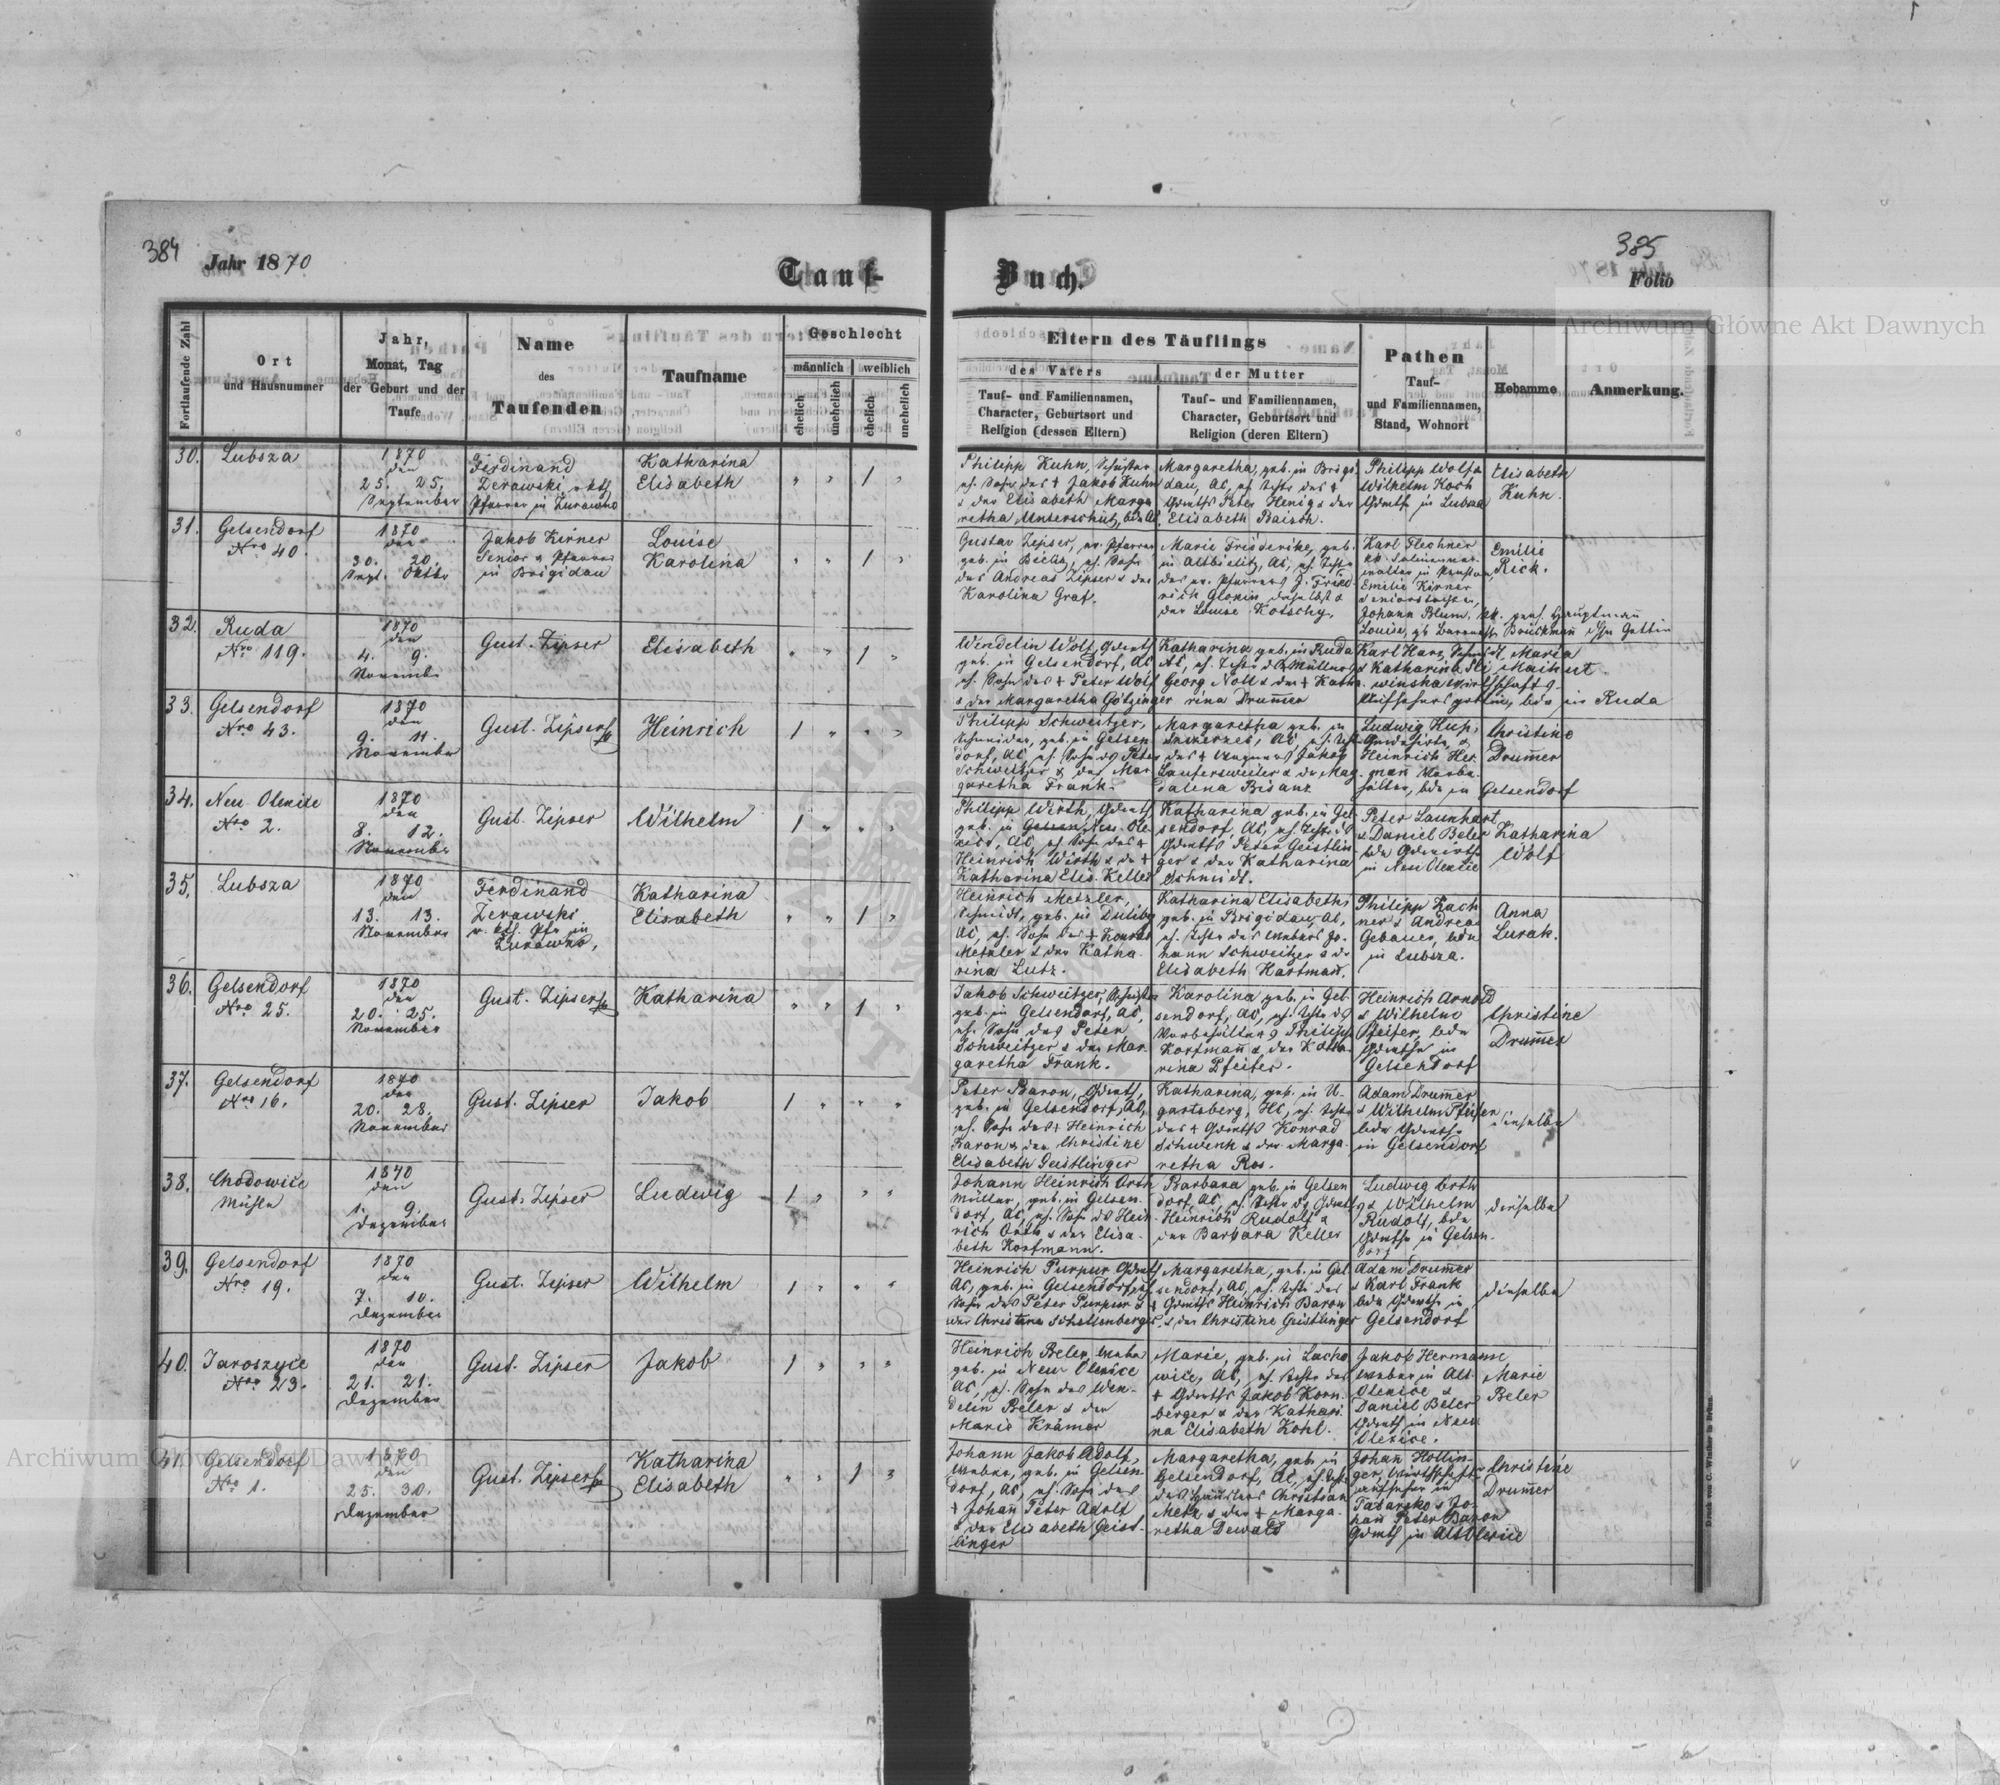 384
Jahr 1870
Tauf-
Buch.
385
Folio
Archiwum Główne Akt Dawnych
Fortlaufende Zahl
Ort
und Hausnummer
Jahr,
Monat, Tag
der Geburt und der
Taufe
Name
des
Taufenden
Taufname
Geschlecht
männlich
weiblich
ehelich
unehelich
ehelich
unehelich
Eltern des Täuflings
des Vaters
Tauf- und Familiennamen,
Character, Geburtsort und
Religion (dessen Eltern)
der Mutter
Tauf- und Familiennamen,
Character, Geburtsort und
Religion (deren Eltern)
Pathen
Tauf-
und Familiennamen,
Stand, Wohnort
Hebamme
Anmerkung.
30.
Lubsza
1870
den
25. 25.
September
Ferdinand
Żerawski
Pfarrer in Żurawno
Katharina
Elisabeth
" " 1 "
Philipp Kuhn, Schuster
eh. Sohn des + Jakob Kuhn
& der Elisabeth Marga
retha Unterschütz, bde AC
Margaretha, geb. in Brigi
dau, AC, eh. Tochter des +
Grundw. Peter Henig & der
Elisabeth Baisch.
Philipp Wolf &
Wilhelm Koch
in Lubsza
Elisabeth
Kuhn.
31.
Gelsendorf
Nro 40.
1870
den
30. 20.
Sept. Oktbr
Jakob Kirner
Senior & Pfarrer
in Brigidau
Louise
Karolina
" " 1 "
Gustav Zipser, ev. Pfarrer
geb. in Bielitz, eh. Sohn
des Andreas Zipser & der
Karolina Graf.
Marie Friederike, geb.
in Altbielitz, AC, eh. Tochter
des ev. Pfarrers J. Fried
rich Glonin, daselbst &
der Louise Kotschy.
Karl Flechner
in Pension,
Emilie Kirner
Seniorstochter,
Johann Blum, kk. pens. Hauptmann
Louise, gb Baronesse Brückmann dssn Gattin
Emilie
Rick.
32.
Ruda
Nro 119.
1870
den
4. 9.
Novembr
Gust. Zipser
Elisabeth
" " 1 "
Wendelin Wolf, Grundw.
geb. in Gelsendorf, AC
eh. Sohn des + Peter Wolf
& der Margaretha Götzinger
Katharina geb. in Ruda
AC, eh. Tochter des Müllers
Georg Noll & der + Katha
rina Drum̄er
Karl Harz, Schmidt
& Katharina Sli
winska Wirthschafts
Aufsehersgattin, bde in Ruda
Maria
Maihut
33.
Gelsendorf
Nro 43.
1870
den
9. 11.
November
Gust. Zipser
Heinrich
1 " " "
Philipp Schweitzer,
Schneider, geb. in Gelsen
dorf, AC, eh. Sohn ds Peter
Schweitzer & der Mar
garetha Frank.
Margaretha geb. in
AC, eh. Tochter
des + Wagners Jakob
Laufersweiler & der Mag
dalena Bisanz
Ludwig Hup,
Grundwirth, &
Heinrich Her
man̄ Vorbe
hälter, bde in Gelsendorf
Christine
Drum̄er
34.
Neu-Olexice
Nro 2.
1870
den
8. 12.
November
Gust. Zipser
Wilhelm
1 " " "
Philipp Wirth, Grundw.
geb. in Neu-Ole
xice, AC, eh. Sohn des +
Heinrich Wirth & der +
Katharina Elis. Keller
Katharina geb. in Gel
sendorf, AC, eh. Tochter ds
Grundw. Peter Geistlin
ger & der Katharina
Schmidt.
Peter Launhart
& Daniel Beler
bde Grundwirthe
in Neu Olexice
Katharina
Wolf
35.
Lubsza
1870
den
13. 13.
November
Ferdinand
Żerawski
r. kth. Pfr in
Żurawno,
Katharina
Elisabeth
" " 1 "
Heinrich Metzler,
Schmidt, geb. in Duliby
AC, eh. Sohn des + Konrad
Metzler & der Katha
rina Lutz.
Katharina Elisabeth,
geb. in Brigidau, AC,
eh. Tochter des Webers Jo
hann Schweitzer & der
Elisabeth Hartman̄.
Philipp Zach
ner & Andreas
Gebauer, bde
in Lubsza.
Anna
Lurak.
36.
Gelsendorf
Nro 25.
1870
den
20. 25.
November
Gust. Zipser
Katharina
" " 1 "
Jakob Schweitzer, Schuster
geb. in Gelsendorf, AC,
eh. Sohn des Peter
Schweitzer & der Mar
garetha Frank.
Karolina geb. in Gel
sendorf, AC, eh. Tochter ds
Vorbehälters Philipp
Korfman̄ & der Katha
rina Pfeifer.
Heinrich Arnold
& Wilhelm
Pfeifer, bde
Grundwirthe in
Gelsendorf
Christine
Drum̄er
37.
Gelsendorf
Nro 16.
1870
den
20. 28.
November
Gust. Zipser
Jakob
1 " " "
Peter Baron, Grundw.
geb. in Gelsendorf, AC,
eh. Sohn des + Heinrich
Baron & der Christine
Elisabeth Geistlinger
Katharina, geb. in U
gartsberg, HC, eh. Tochter
des + Grundw. Konrad
Schwenk & der Marga
retha Ros.
Adam Drum̄er
& Wilhelm Pfeifer
bde Grundwirthe
in Gelsendorf
dieselbe
38.
Chodowice
Mühle
1870
den
1. 9.
Dezember
Gust. Zipser
Ludwig
1 " " "
Johann Heinrich Orth
Müller, geb. in Gelsen
dorf, AC, eh. Sohn ds Hein
rich Orth & der Elisa
beth Korfmann.
Barbara geb. in Gelsen
dorf, AC, eh. Tochter ds Grundw.
Heinrich Rudolf &
der Barbara Keller
Ludwig Orth
& Wilhelm
Rudolf, bde
Grundwirthe in Gelsen
dorf
dieselbe
39.
Gelsendorf
Nro 19.
1870
den
7. 10.
Dezember
Gust. Zipser
Wilhelm
1 " " "
Heinrich Purpur Grundw.
AC, geb. in Gelsendorf, eh.
Sohn des Peter Purpur &
der Christine Schellenberger
Margaretha, geb. in Gel
sendorf, AC, eh. Tochter des
+ Grundw. Heinrich Baron
& der Christine Geistlinger
Adam Drum̄er
& Karl Frank
bde Grundwirthe in
Gelsendorf
dieselbe
40.
Jaroszyce
Nro 23.
1870
den
21. 21.
Dezember
Gust. Zipser
Jakob
1 " " "
Heinrich Beler, Weber
geb. in Neu Olexice
AC, eh. Sohn des Wen
delin Beler & der
Marie Krämer
Marie, geb. in Lacho
wice, AC, eh. Tochter des
+ Grundw. Jakob Korn
berger & der Kathari
na Elisabeth Kohl.
Jakob Hermann,
Weber in Alt
Olexice &
Daniel Beler
Grundw. in Neu
Olexice.
Marie
Beler
41.
Gelsendorf
Nro 1.
1870
den
25. 30.
Dezember
Gust. Zipser
Katharina
Elisabeth
" " 1 "
Johann Jakob Adolf,
Weber, geb. in Gelsen
dorf, AC, eh. Sohn des
+ Johan̄ Peter Adolf
& der Elisabeth Geist
linger
Margaretha, geb. in
Gelsendorf, AC, eh. Tochter
des Häuslers Christian
Metz & der + Marga
retha Dewald
Johan̄ Hollin
ger, Wirthschafts
aufseher in
Tatarsko & Jo
han̄ Peter Baron
Grundw. in Alt Olexice
Christine
Drum̄er
Druck von C. Winiker in Brünn.
Archiwum Główne Akt Dawnych